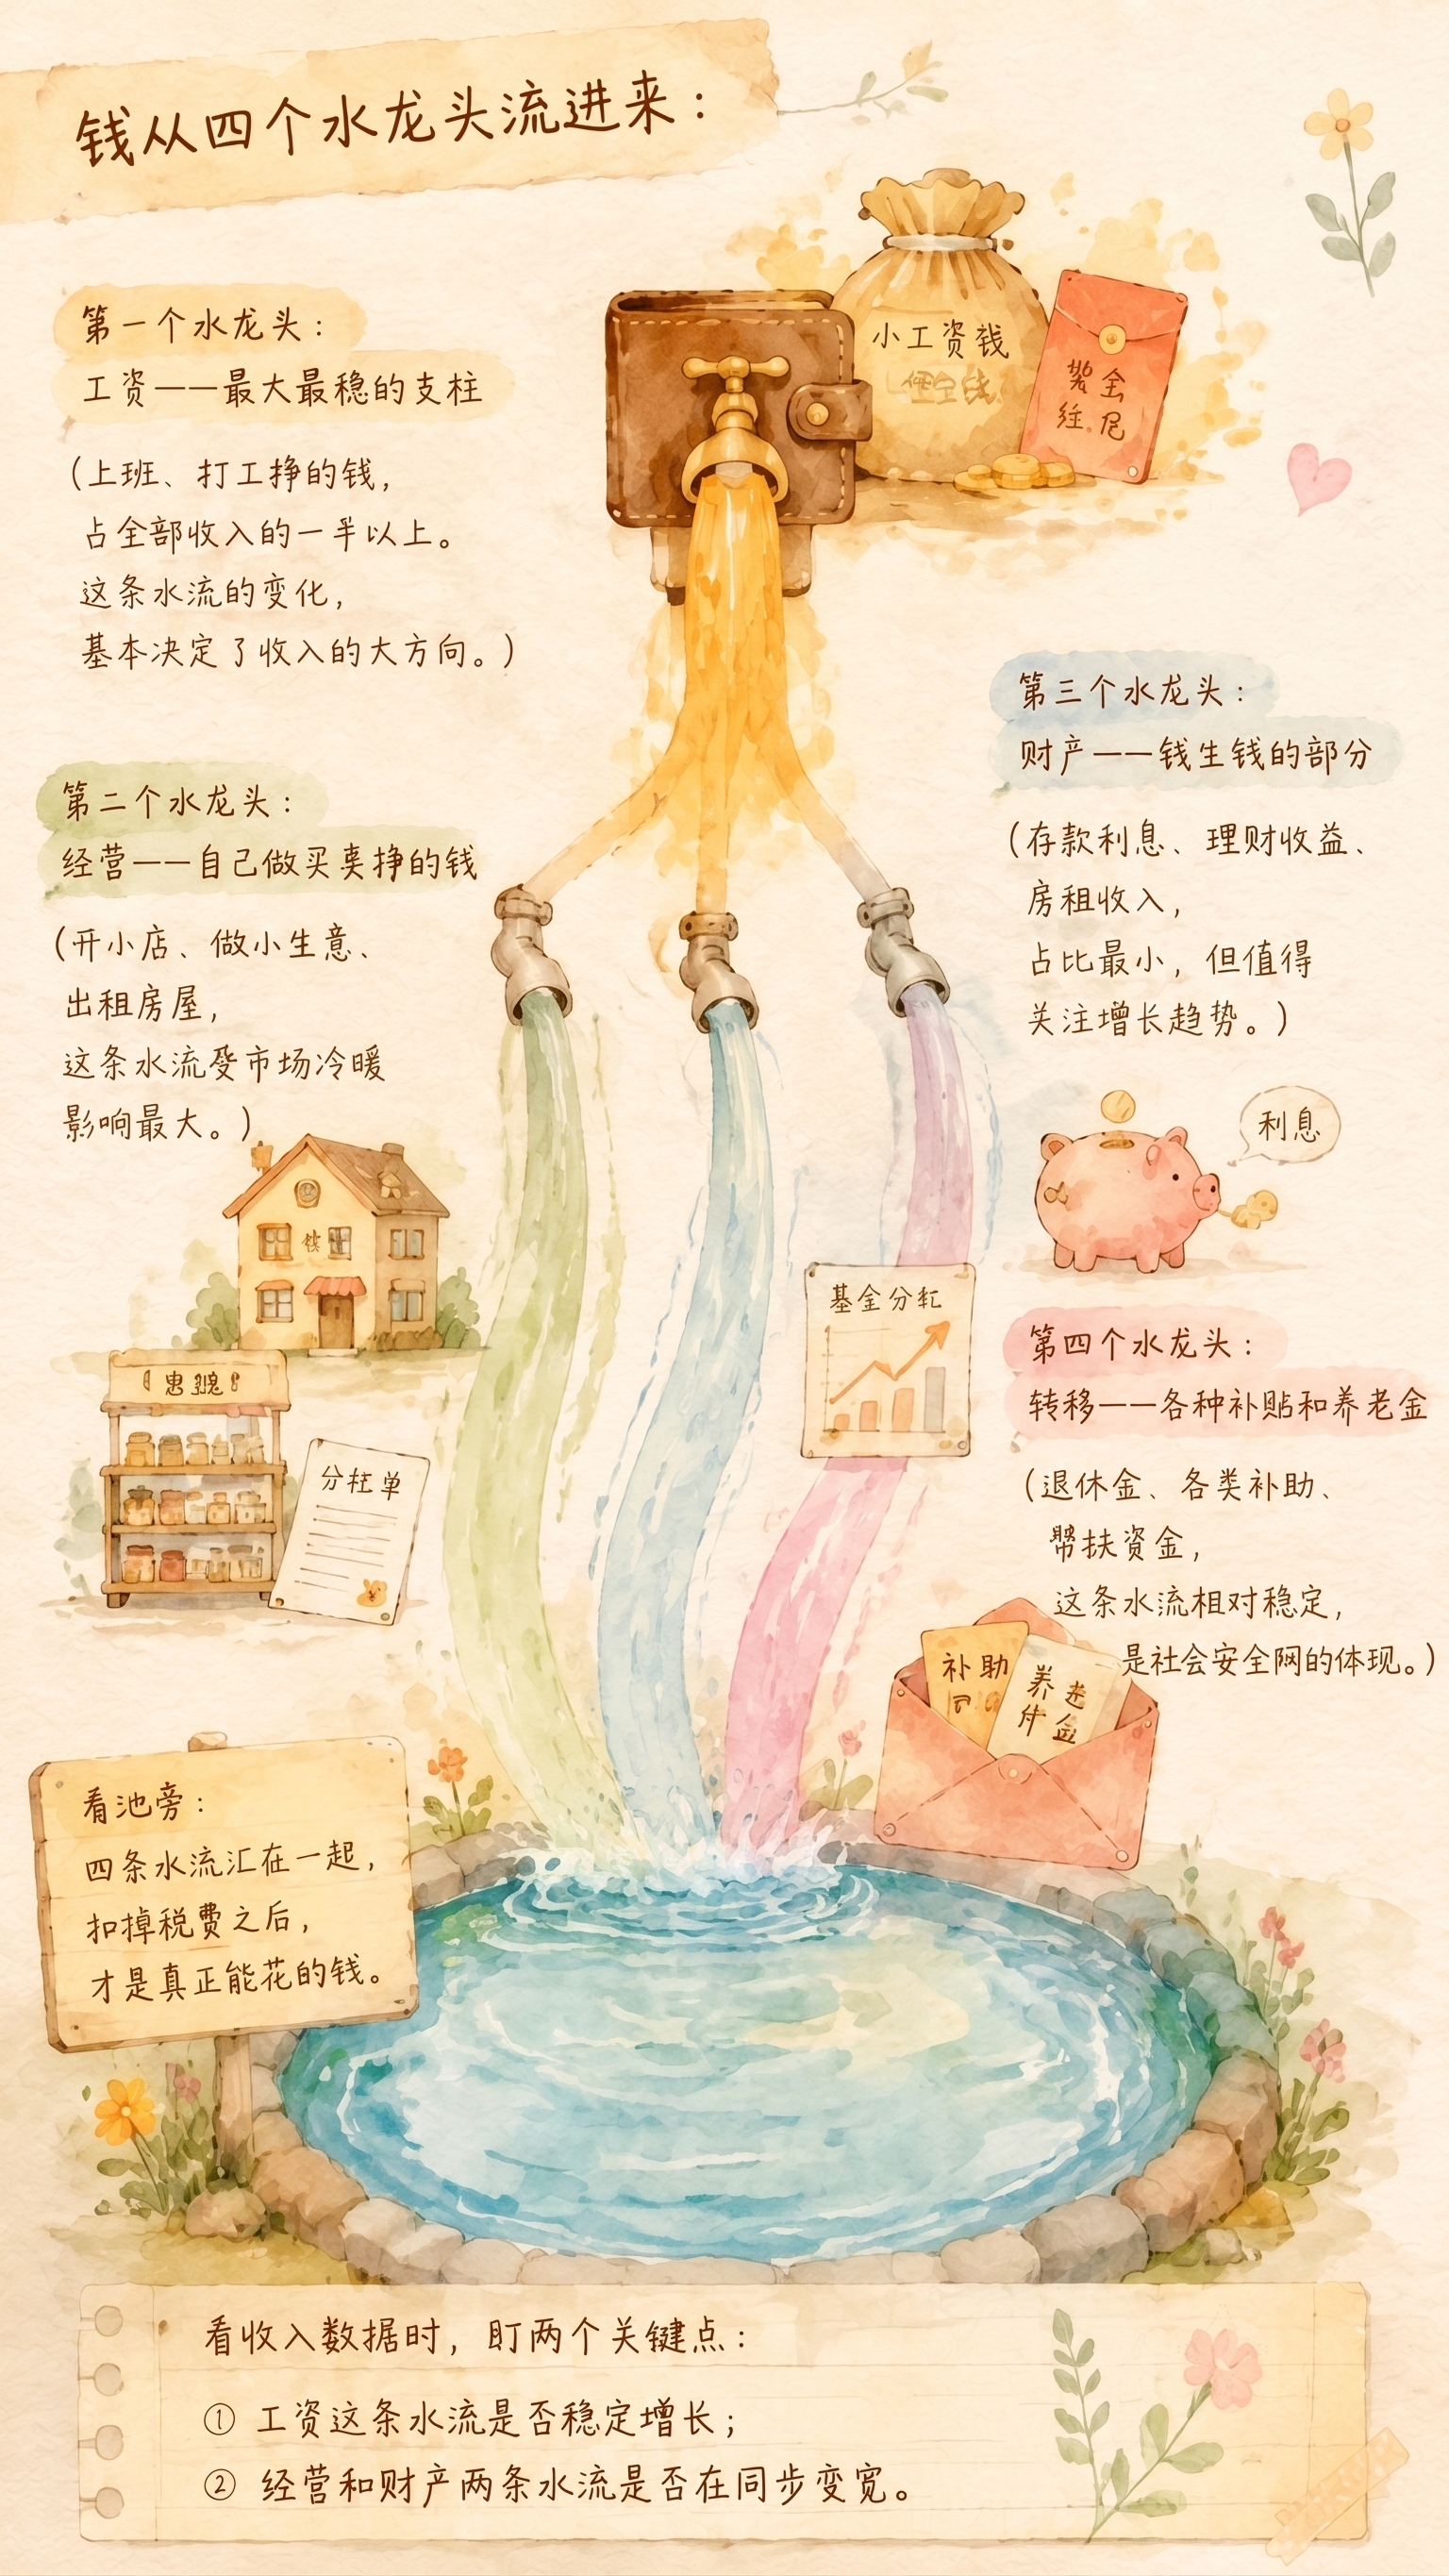 钱从四个水龙头流进来：
小工资钱
第一个水龙头：
工资——最大最稳的支柱
（上班、打工挣的钱，
占全部收入的一半以上。
这条水流的变化，
基本决定了收入的大方向。）
第二个水龙头：
经营——自己做买卖挣的钱
（开小店、做小生意、
出租房屋，
这条水流受市场冷暖
影响最大。）
单
第三个水龙头：
财产——钱生钱的部分
（存款利息、理财收益、
房租收入，
占比最小，但值得
关注增长趋势。）
利息
基金分红
第四个水龙头：
转移——各种补贴和养老金
（退休金、各类补助、
帮扶资金，
这条水流相对稳定，
是社会安全网的体现。）
补助
养老
金
看池旁：
四条水流汇在一起，
扣掉税费之后，
才是真正能花的钱。
看收入数据时，盯两个关键点：
① 工资这条水流是否稳定增长；
② 经营和财产两条水流是否在同步变宽。